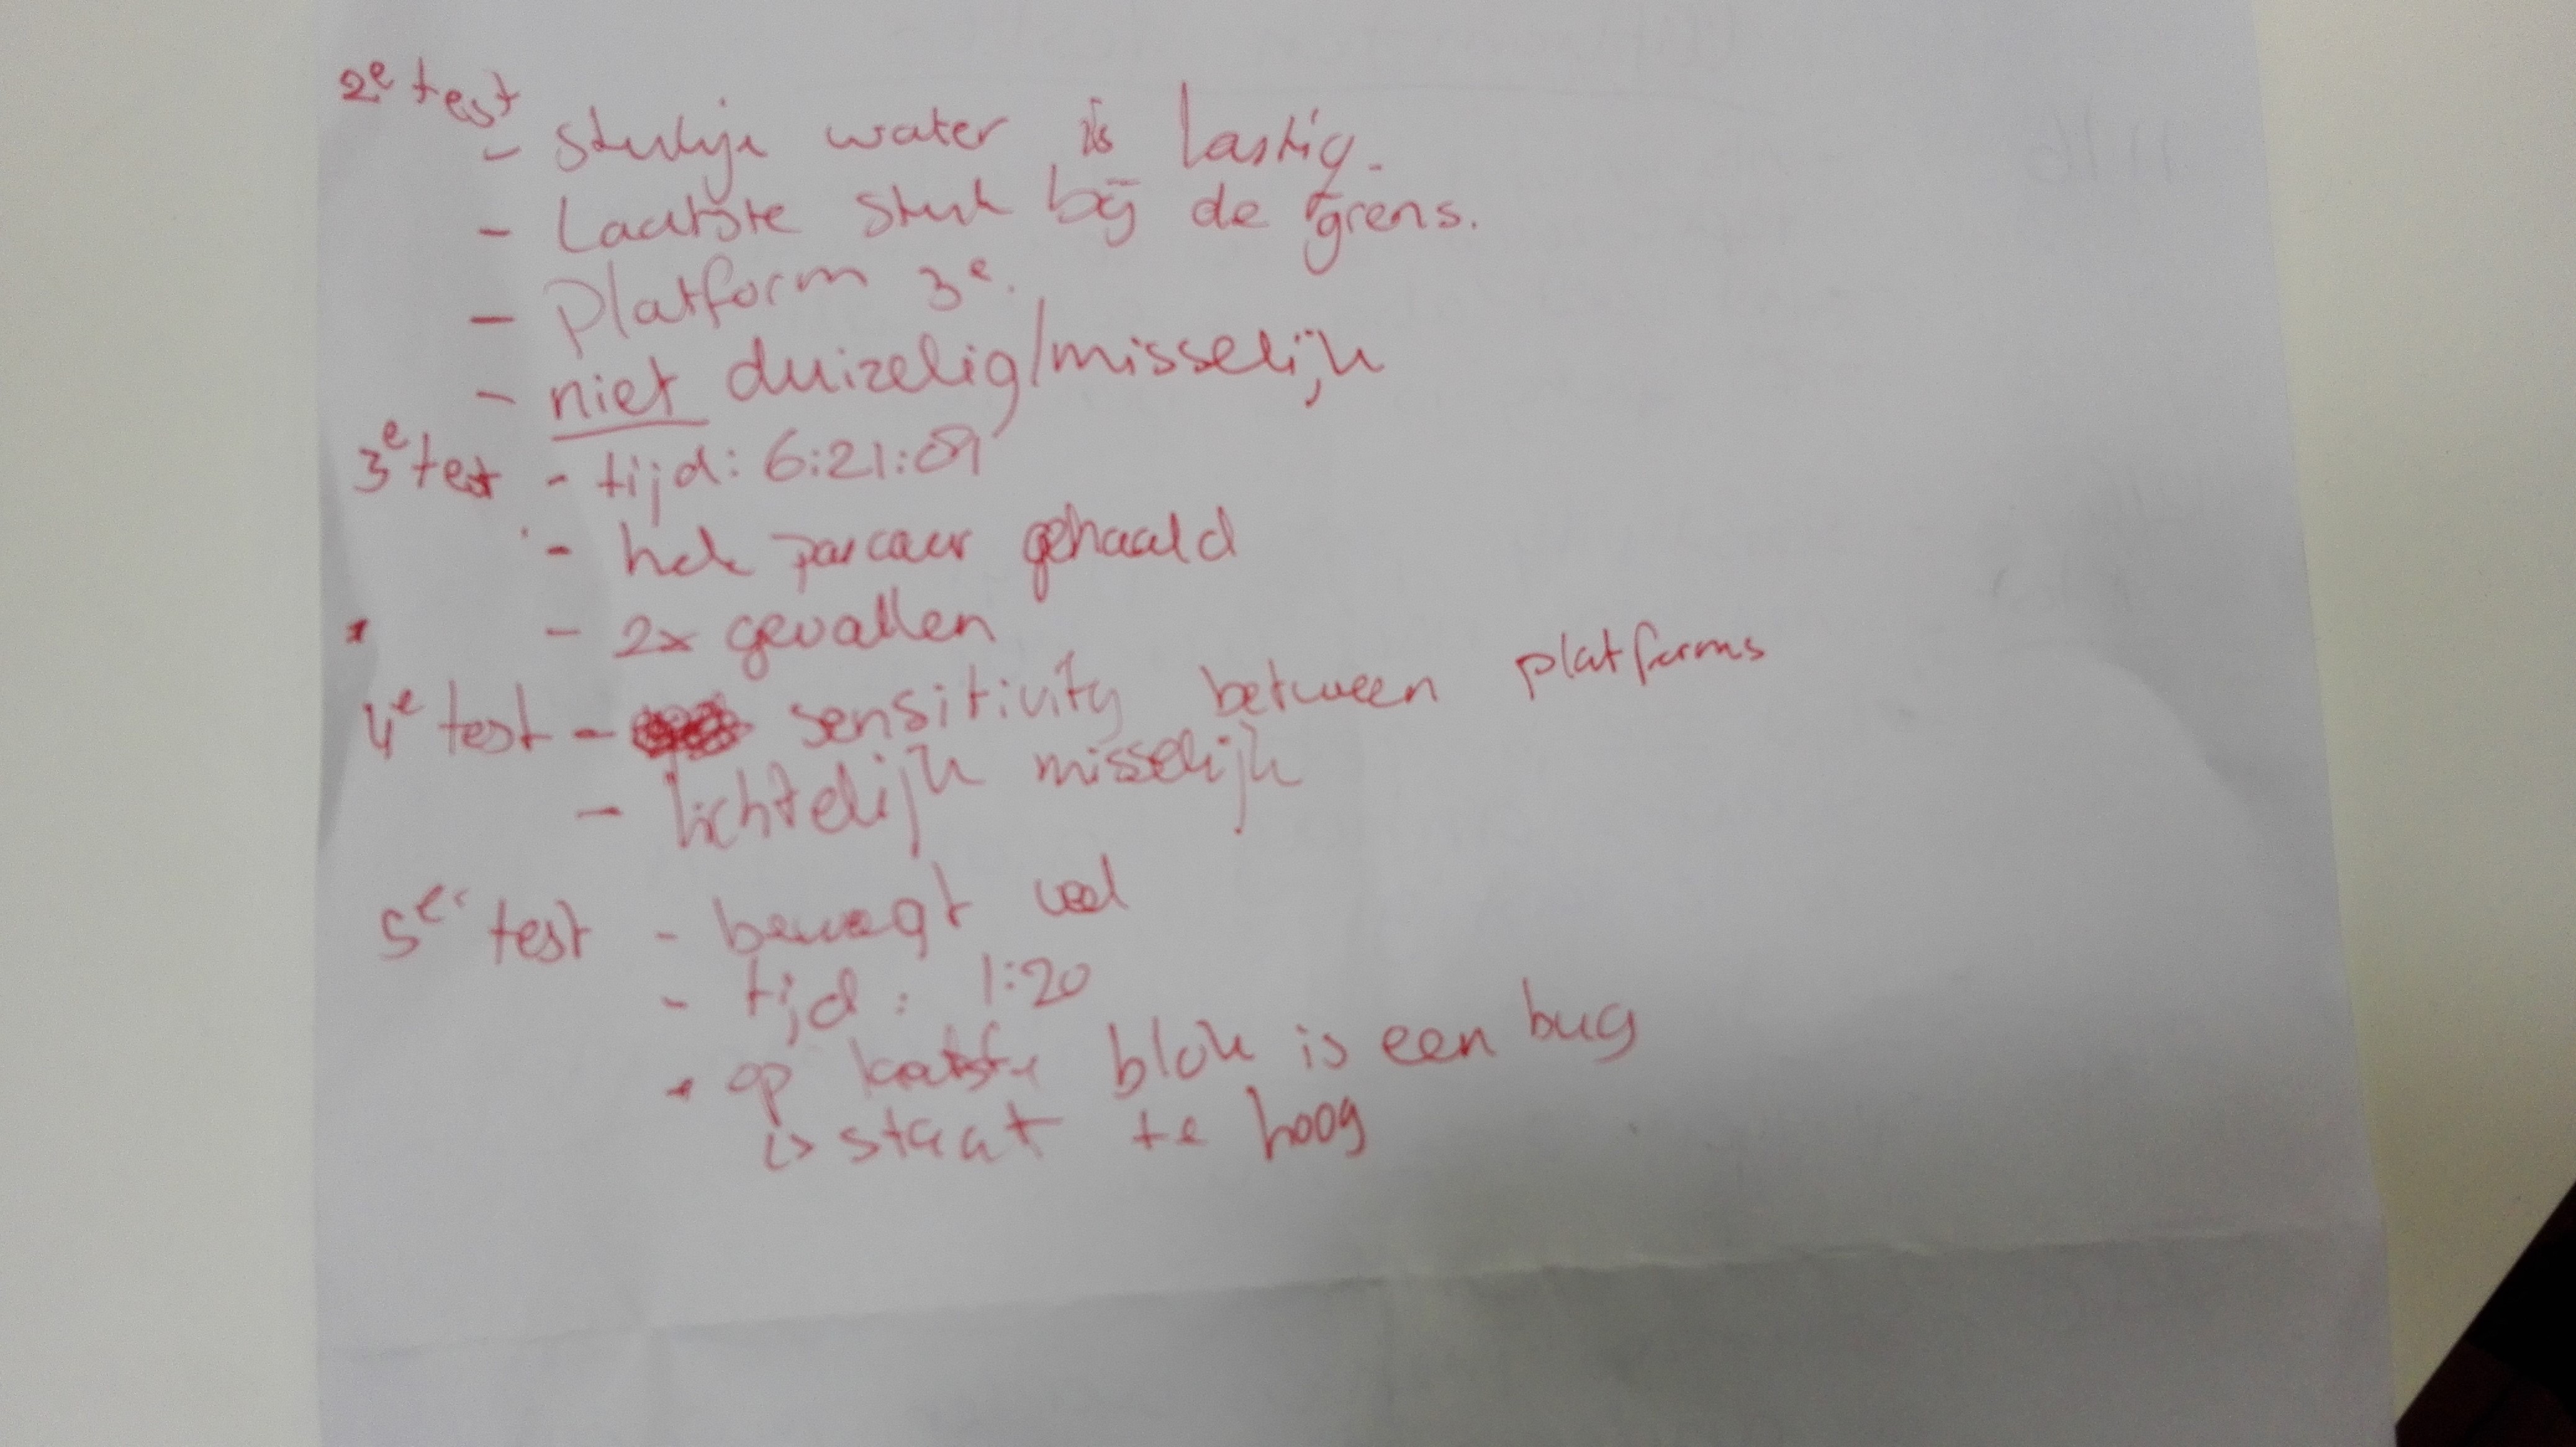 2e test
- stukje water is lastig.
- Laatste stuk bij de grens.
- Platform 3e.
- niet duizelig/misselijk
3e test - tijd: 6:21:09
- hele parcour gehaald
- 2x gevallen
4e test - sensitivity between platforms
- lichtelijk misselijk
5e test - beweegt veel
- tijd: 1:20
- op laatste blok is een bug
↳ staat te hoog